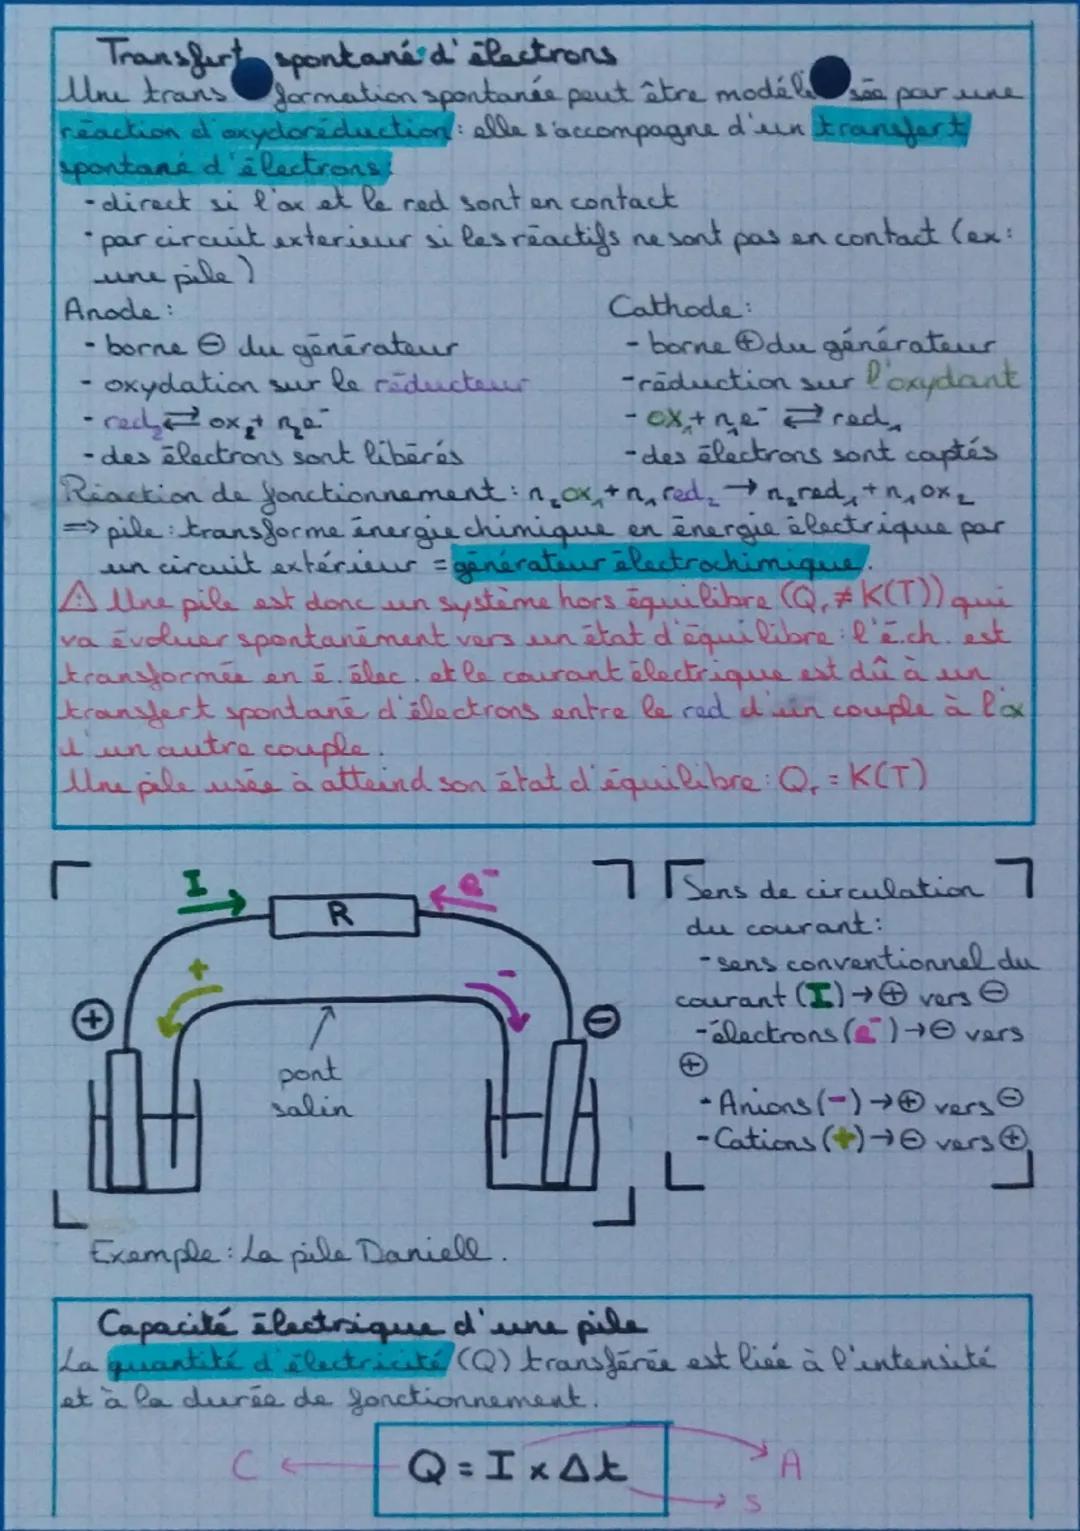 Transfert spontané d'électrons
Une transformation spontanée peut être modélisée par une
réaction d'oxydoréduction : elle s'accompagne d'un transfert
spontané d'électrons :
- direct si l'ox et le red sont en contact
- par circuit exterieur si les réactifs ne sont pas en contact (ex :
une pile)
Anode :
- borne ⊖ du générateur
- oxydation sur le réducteur
- red₂ ⇄ ox₂ + n₂e⁻
- des électrons sont libérés
Cathode :
- borne ⊕ du générateur
- réduction sur l'oxydant
- ox₁ + n₁e⁻ ⇄ red₁
- des électrons sont captés
Réaction de fonctionnement : n₂ox₁ + n₁red₂ → n₂red₁ + n₁ox₂
⇒ pile : transforme énergie chimique en énergie électrique par
un circuit extérieur = générateur électrochimique.
⚠ Une pile est donc un système hors équilibre (Qᵣ ≠ K(T)) qui
va évoluer spontanément vers un état d'équilibre : l'é.ch. est
transformée en é. élec. et le courant électrique est dû à un
transfert spontané d'électrons entre le red d'un couple à l'ox
d'un autre couple.
Une pile usée à atteind son état d'équilibre : Qᵣ = K(T)
I
e⁻
R
+
-
⊕
⊖
pont
salin
Sens de circulation
du courant :
- sens conventionnel du
courant (I) → ⊕ vers ⊖
- électrons (e⁻) → ⊖ vers
⊕
- Anions (-) → ⊕ vers ⊖
- Cations (+) → ⊖ vers ⊕
Exemple : La pile Daniell.
Capacité électrique d'une pile
La quantité d'électricité (Q) transférée est liée à l'intensité
et à la durée de fonctionnement.
C ← Q = I × Δt → A
→ s